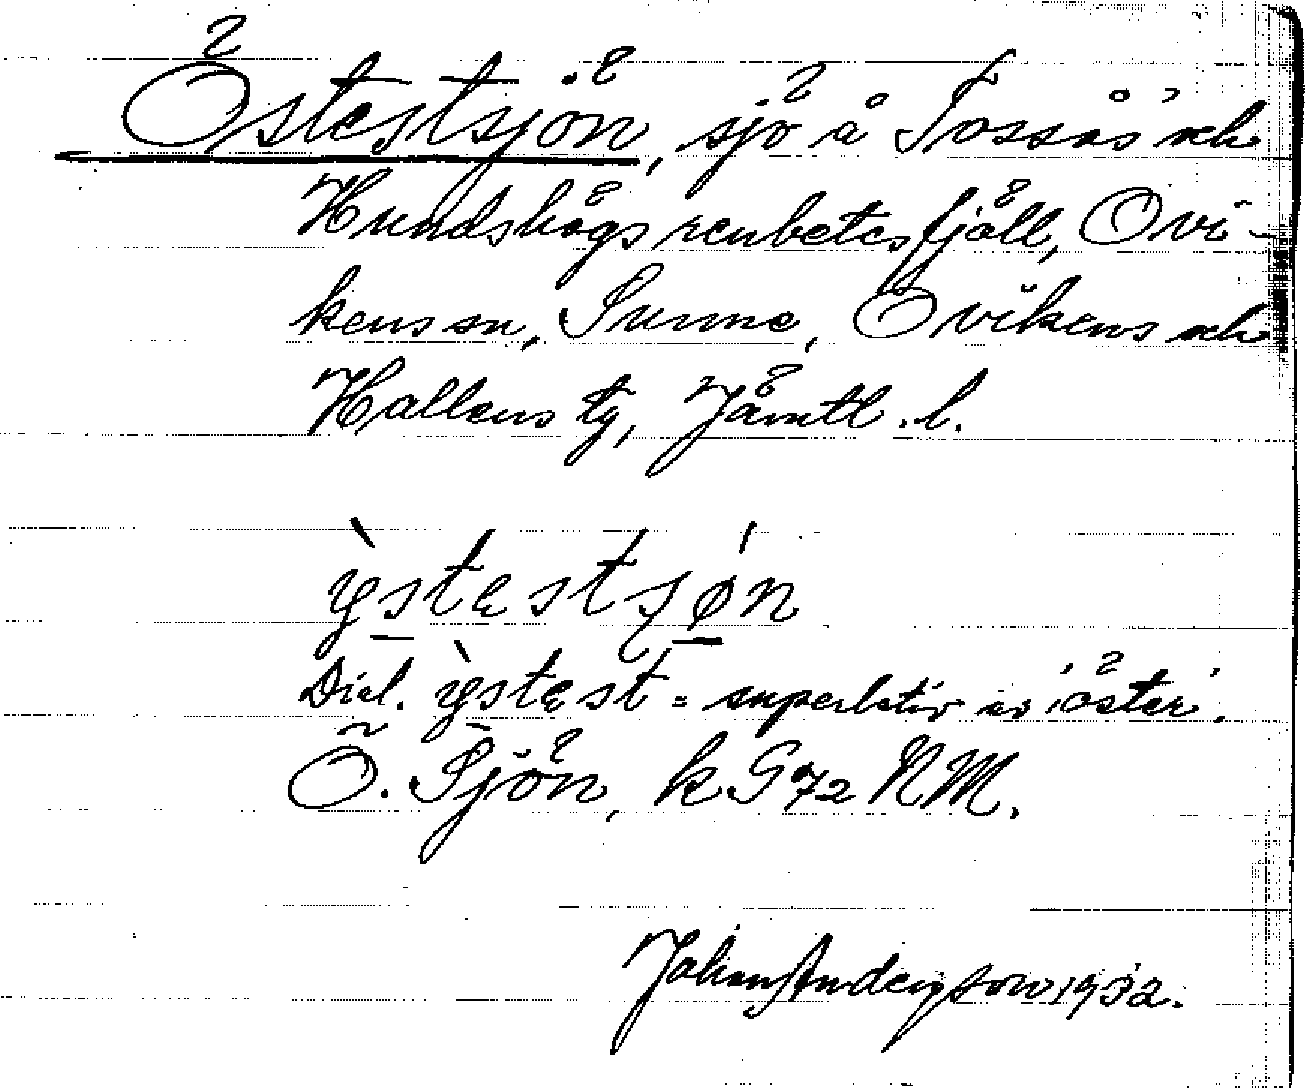 Östestsjön, sjö å Tossås och
Hundshögs renbetesfjäll, Ovi-
kens sn, Sunne, Ovikens och
Hallens tg, Jämtl. l.
ỳstestsjǿn
Dial. ỳstest = superlativ av 'öster'.
Ö. Sjön, k G 72 NM.
Johan Anderson 1932.